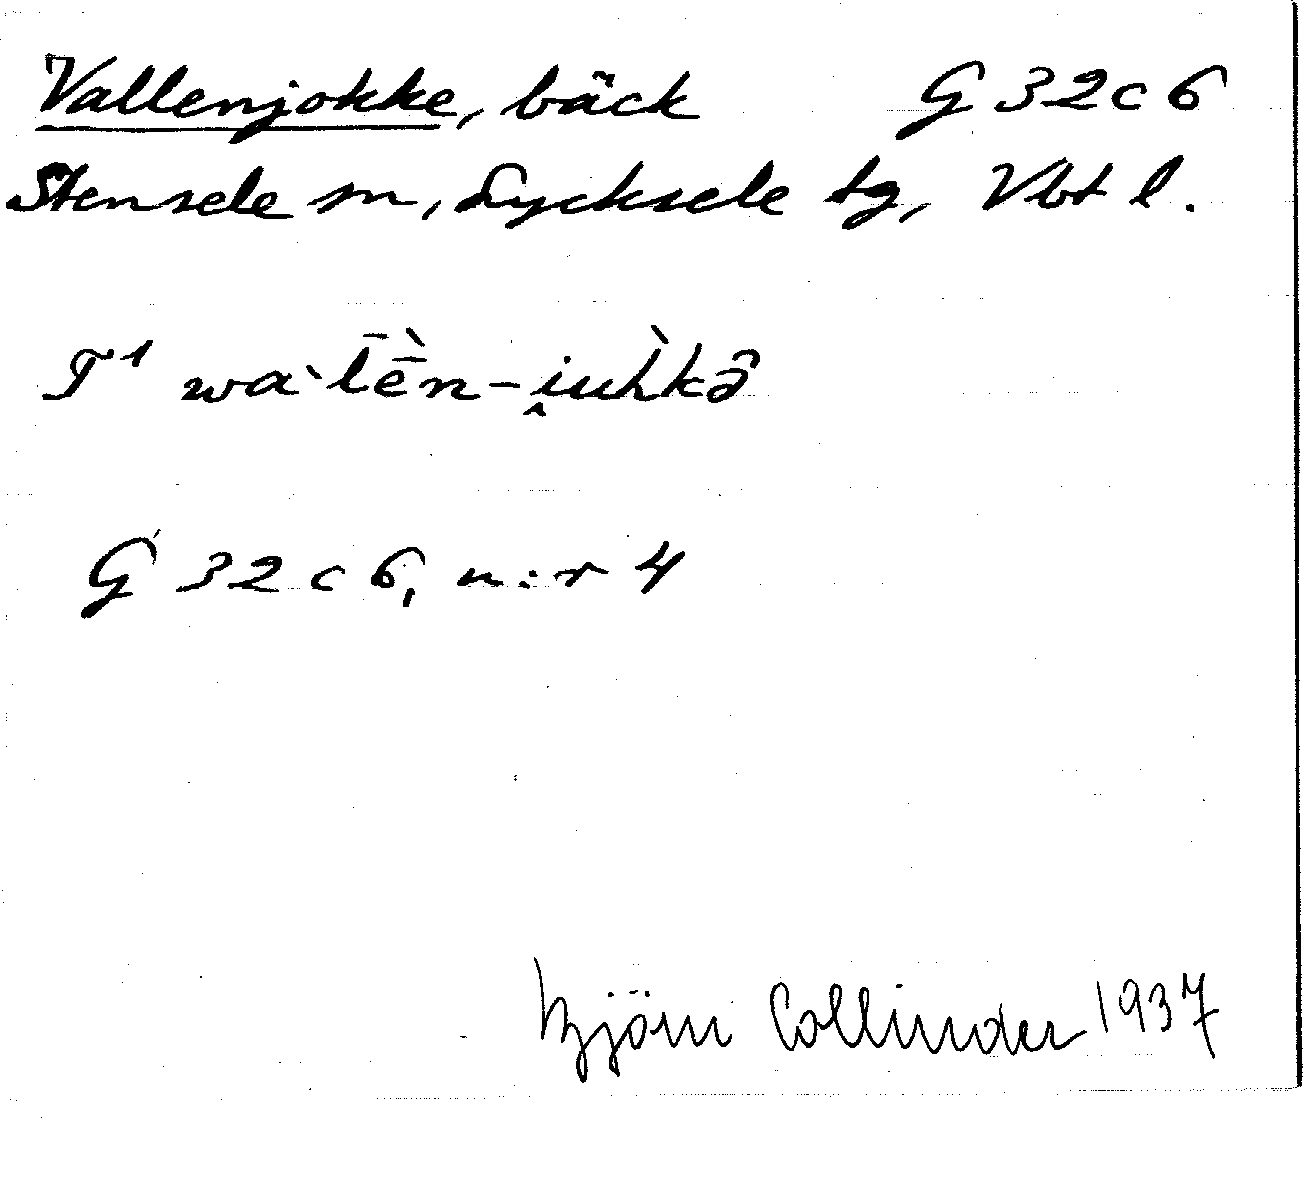 Vallenjokke, bäck G 32 c 6
Stensele sn, Lycksele tg, Vbt l.
T¹ waˋl̄ḕn-i̭uh̀kə̑
G 32 c 6, n:r 4
Björn Collinder 1937